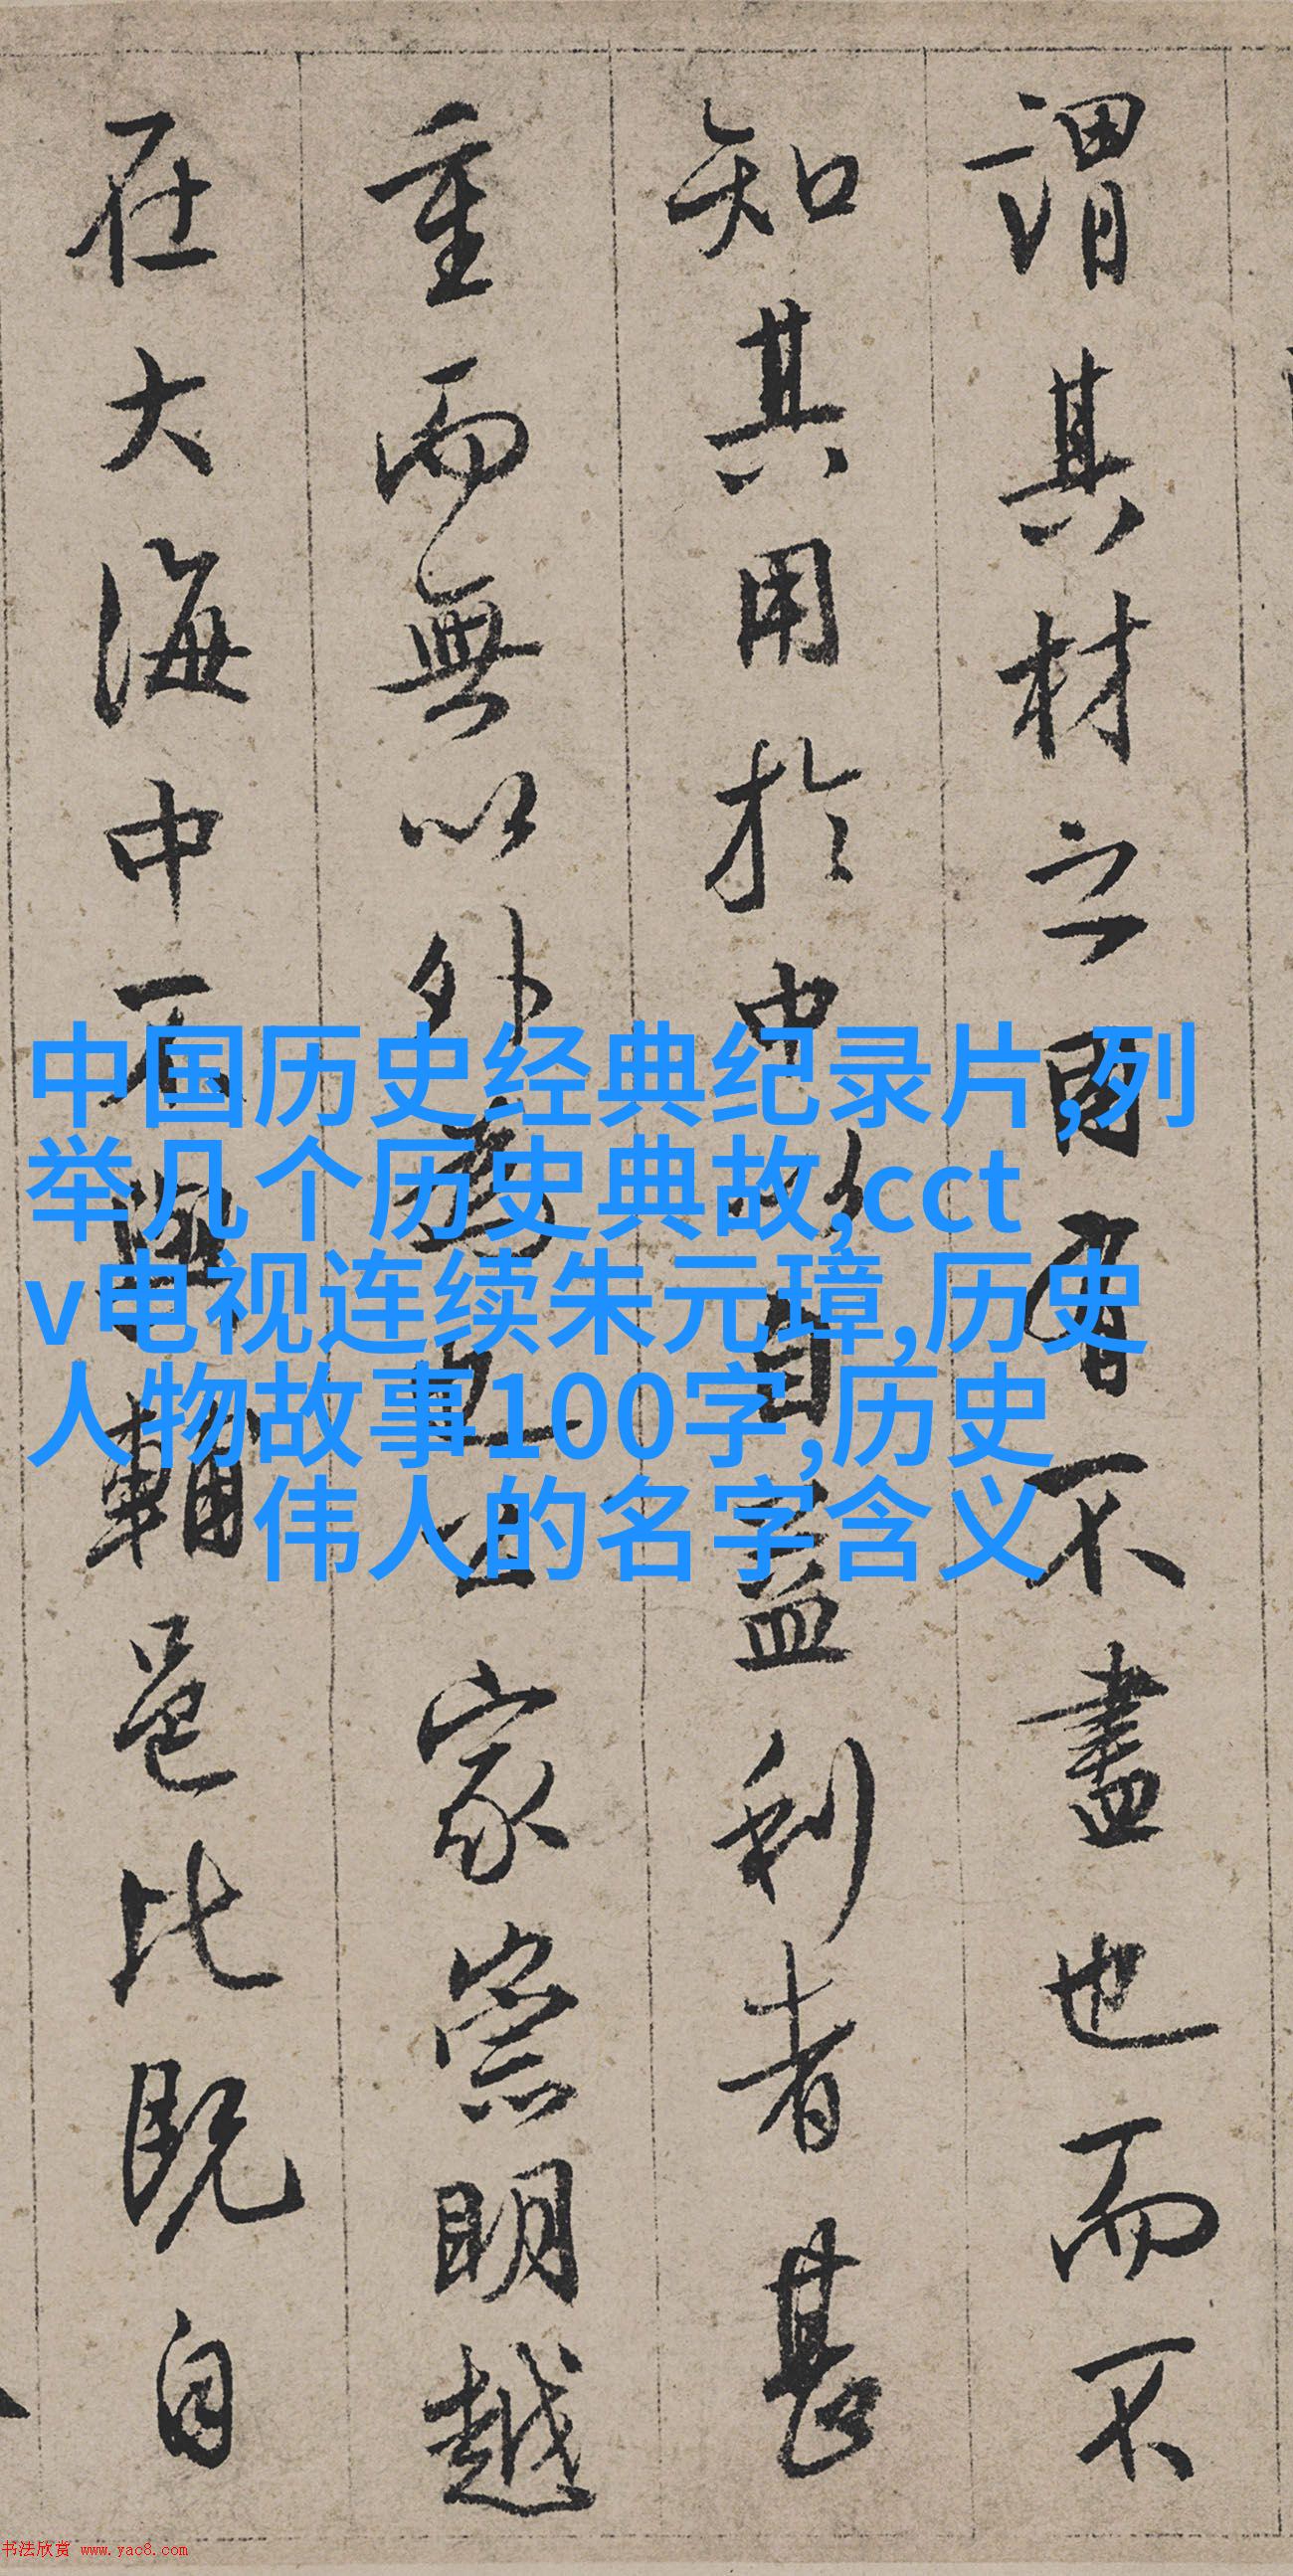 謂其材之有不盡也而不
知其用於中自益利者甚
重而無以外家崇明越
在大海中不與輔邑比既自
中国历史经典纪录片,列
举几个历史典故,cct
v电视连续朱元璋,历史
人物故事100字,历史
伟人的名字含义
书法欣赏 www.yac8.com